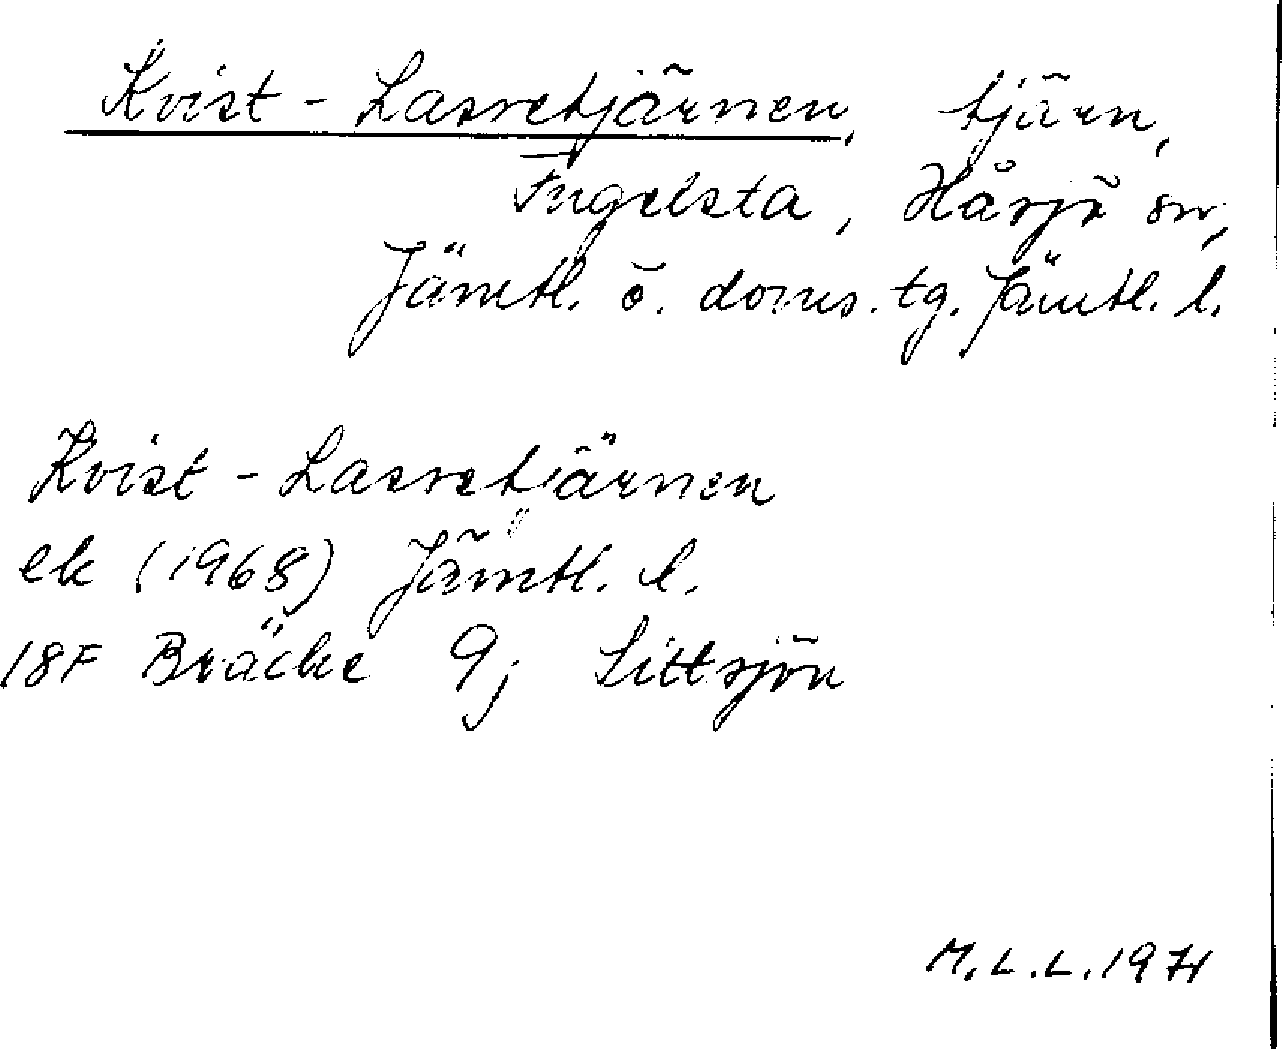 Kvist-Lassetjärnen, tjärn,
Fugelsta, Håsjö sn,
Jämtl. ö. doms. tg. Jämtl. l.
Kvist-Lassetjärnen
ek (1968) Jämtl. l.
18F Bräcke 9j Sittsjön
M.L.L. 1971